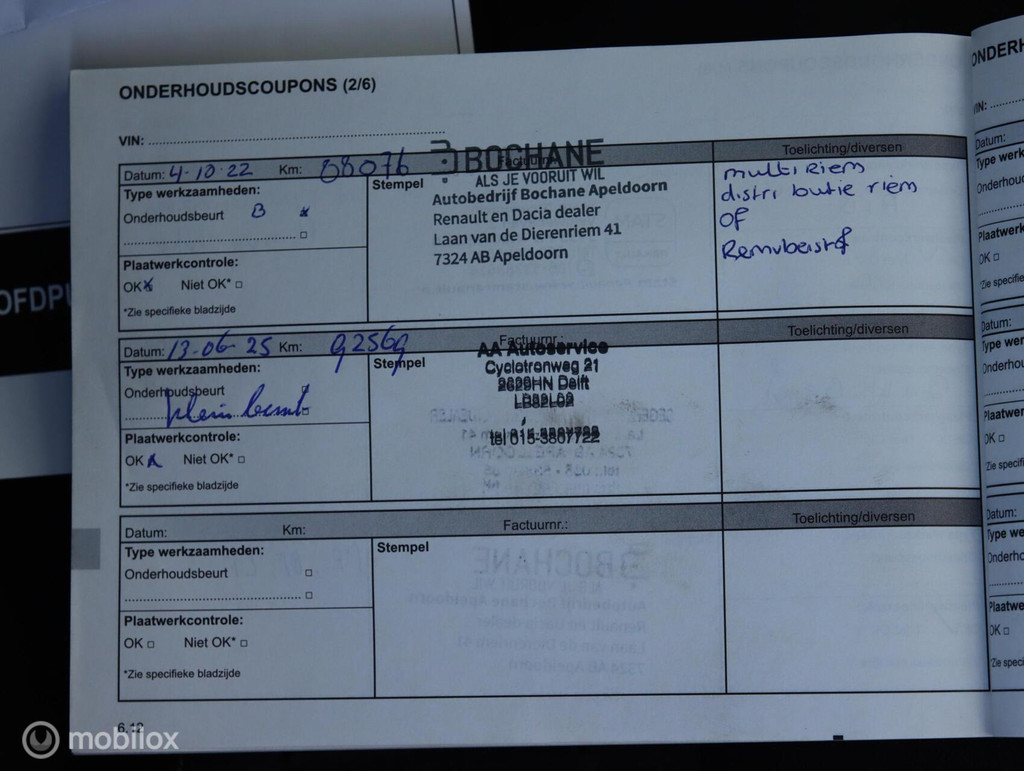 ONDERHOUDSCOUPONS (2/6)
VIN:
Datum: 4-10-22 Km: 88076 Factuurnr.: Toelichting/diversen
BOCHANE
ALS JE VOORUIT WIL
Autobedrijf Bochane Apeldoorn
Renault en Dacia dealer
Laan van de Dierenriem 41
7324 AB Apeldoorn
Type werkzaamheden:
Stempel
Onderhoudsbeurt B
Plaatwerkcontrole:
OK Niet OK*
*Zie specifieke bladzijde
multi Riem
distributie riem
OF
Remvloeistof
Datum: 13-06-25 Km: 92569 Factuurnr.: Toelichting/diversen
Type werkzaamheden:
Stempel
AA Autoservice
Cyclotronweg 21
2629HN Delft
tel 015-3807722
Onderhoudsbeurt
klein beurt
Plaatwerkcontrole:
OK Niet OK*
*Zie specifieke bladzijde
Datum: Km: Factuurnr.: Toelichting/diversen
Type werkzaamheden:
Stempel
Onderhoudsbeurt
Plaatwerkcontrole:
OK Niet OK*
*Zie specifieke bladzijde
6.12
mobilox
OFDPU
ONDERH
VIN:
Datum:
Type werk
Onderhoud
Plaatwerk
OK
*Zie specifie
Datum:
Type wer
Onderhou
Plaatwer
OK
*Zie specifi
Datum:
Type we
Onderho
Plaatwe
OK
*Zie speci